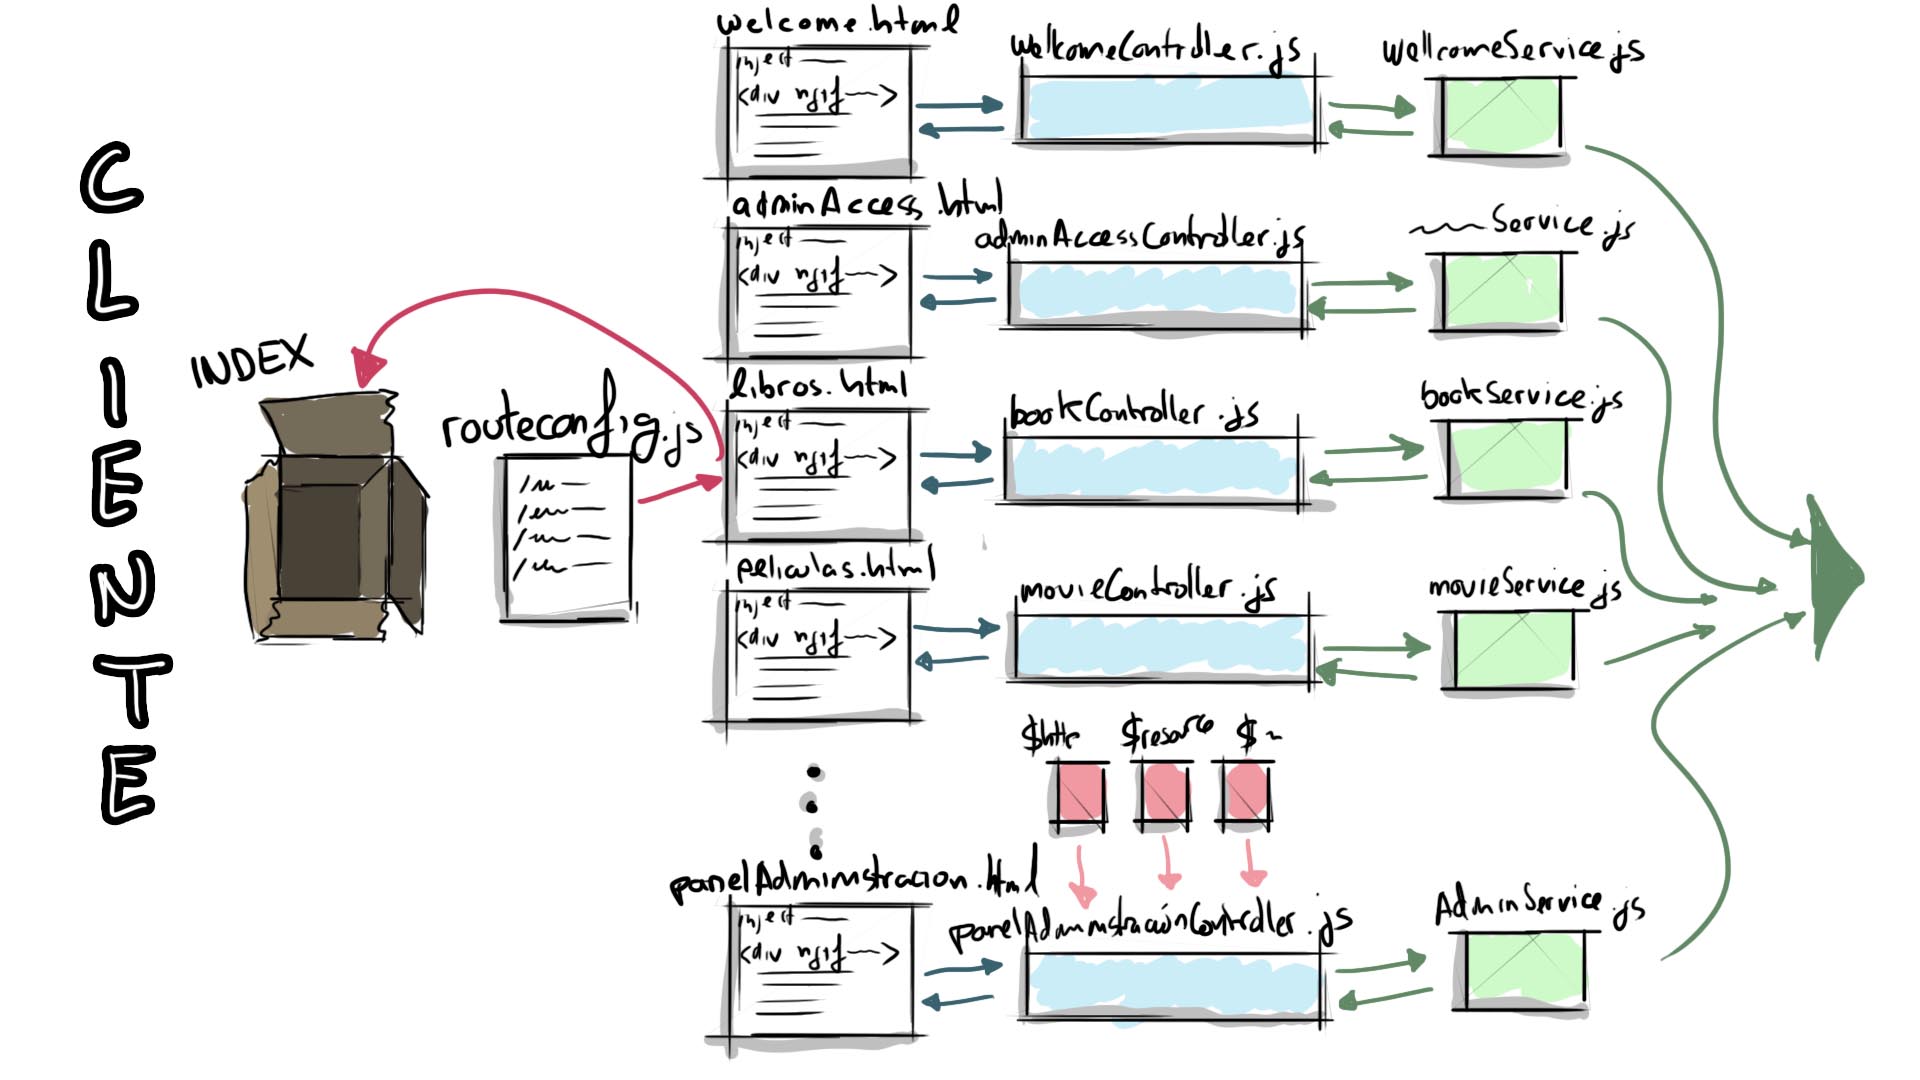 CLIENTE
INDEX
routeconfig.js
welcome.html
inject
<div ngif >
welkomeController.js
wellcomeService.js
adminAccess.html
inject
<div ngif >
adminAccessController.js
Service.js
libros.html
inject
<div ngif >
bookController.js
bookService.js
peliculas.html
inject
<div ngif >
movieController.js
movieService.js
$http
$
panelAdministracion.html
inject
<div ngif >
panelAdministraciónController.js
AdminService.js